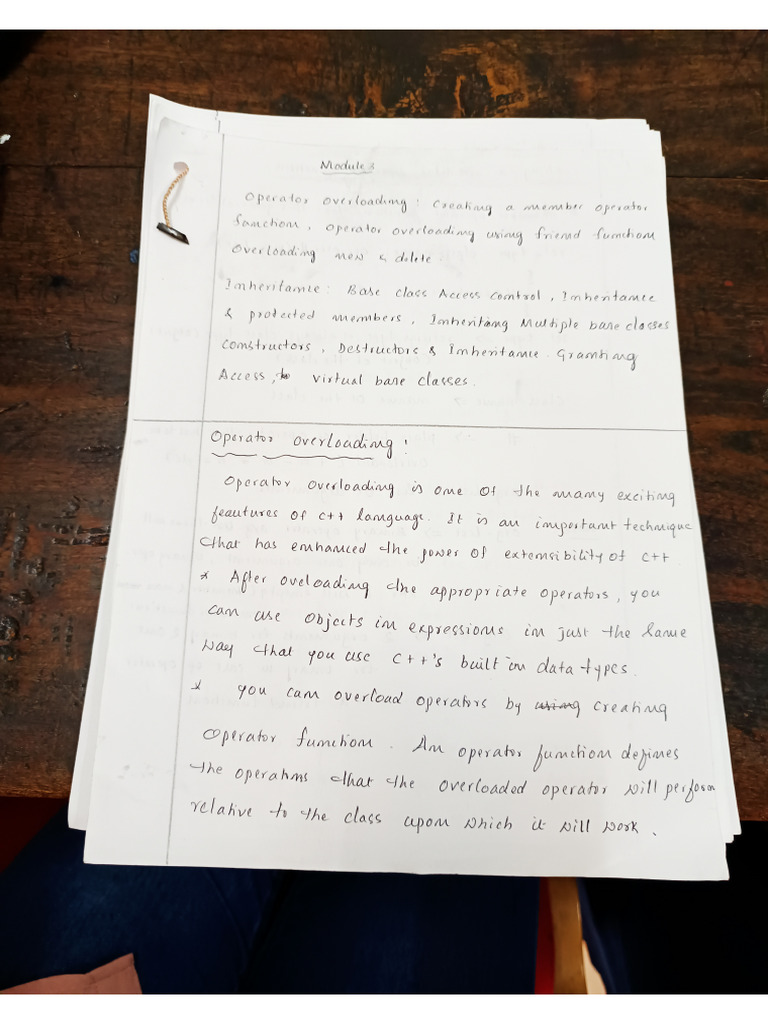 Module 3
Operator overloading : Creating a member operator
function, Operator overloading using friend function
Overloading new & delete
Inheritance : Base class Access control, Inheritance
& protected members, Inheriting Multiple base classes
Constructors, Destructors & Inheritance. Granting
Access, to virtual base classes.
Operator overloading :
Operator overloading is one of the many exciting
feautures of C++ language. It is an important technique
that has enhanced the power of extensibility of C++
* After oveloading the appropriate operators, you
can use objects in expressions in just the same
way that you use C++'s built in data types.
* you can overload operators by using creating
Operator function. An operator function defines
the operations that the overloaded operator will perform
relative to the class upon which it will work.